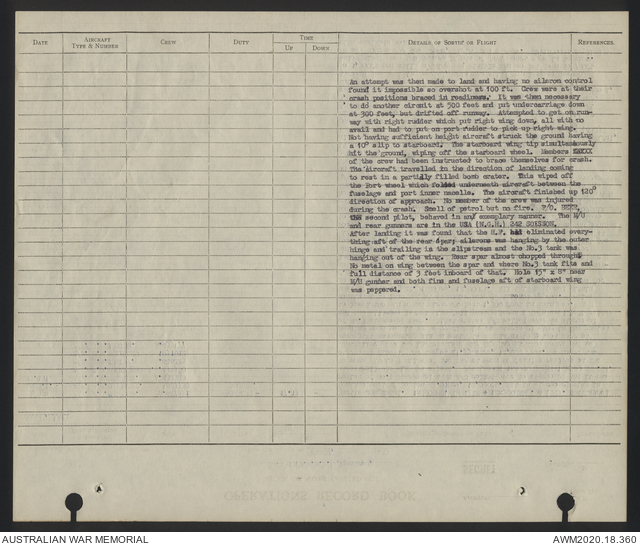 DATE
AIRCRAFT
TYPE & NUMBER
CREW
DUTY
TIME
UP
DOWN
DETAILS OF SORTIE OR FLIGHT
REFERENCES
An attempt was then made to land and having no aileron control
found it impossible so overshot at 100 ft. Crew were at their
crash positions braced in readiness. It was then necessary
to do another circuit at 500 feet and put undercarriage down
at 300 feet, but drifted off runway. Attempted to get on run-
way with right rudder which put right wing down, all with no
avail and had to put on port rudder to pick up right wing.
Not having sufficient height aircraft struck the ground having
a 10° slip to starboard. The starboard wing tip simultaneously
hit the ground, wiping off the starboard wheel. Members
of the crew had been instructed to brace themselves for crash.
The aircraft travelled in the direction of landing coming
to rest in a partially filled bomb crater. This wiped off
the Port wheel which folded underneath aircraft between the
fuselage and port inner nacelle. The aircraft finished up 120°
direction of approach. No member of the crew was injured
during the crash. Smell of petrol but no fire. F/O.
the second pilot, behaved in any exemplary manner. The M/U
and rear gunners are in the
After landing it was found that the H.F. had eliminated every-
thing aft of the rear spar; ailerons was hanging by the outer
hinge and trailing in the slipstream and the No.3 tank was
hanging out of the wing. Rear spar almost chopped through
No metal on wing between the spar and where No.3 tank fits and
full distance of 3 feet inboard of that. Hole 15" x 8" near
M/U gunner and both fins and fuselage aft of starboard wing
was peppered.
SECRET
OPERATIONS RECORD BOOK
AUSTRALIAN WAR MEMORIAL
AWM2020.18.360